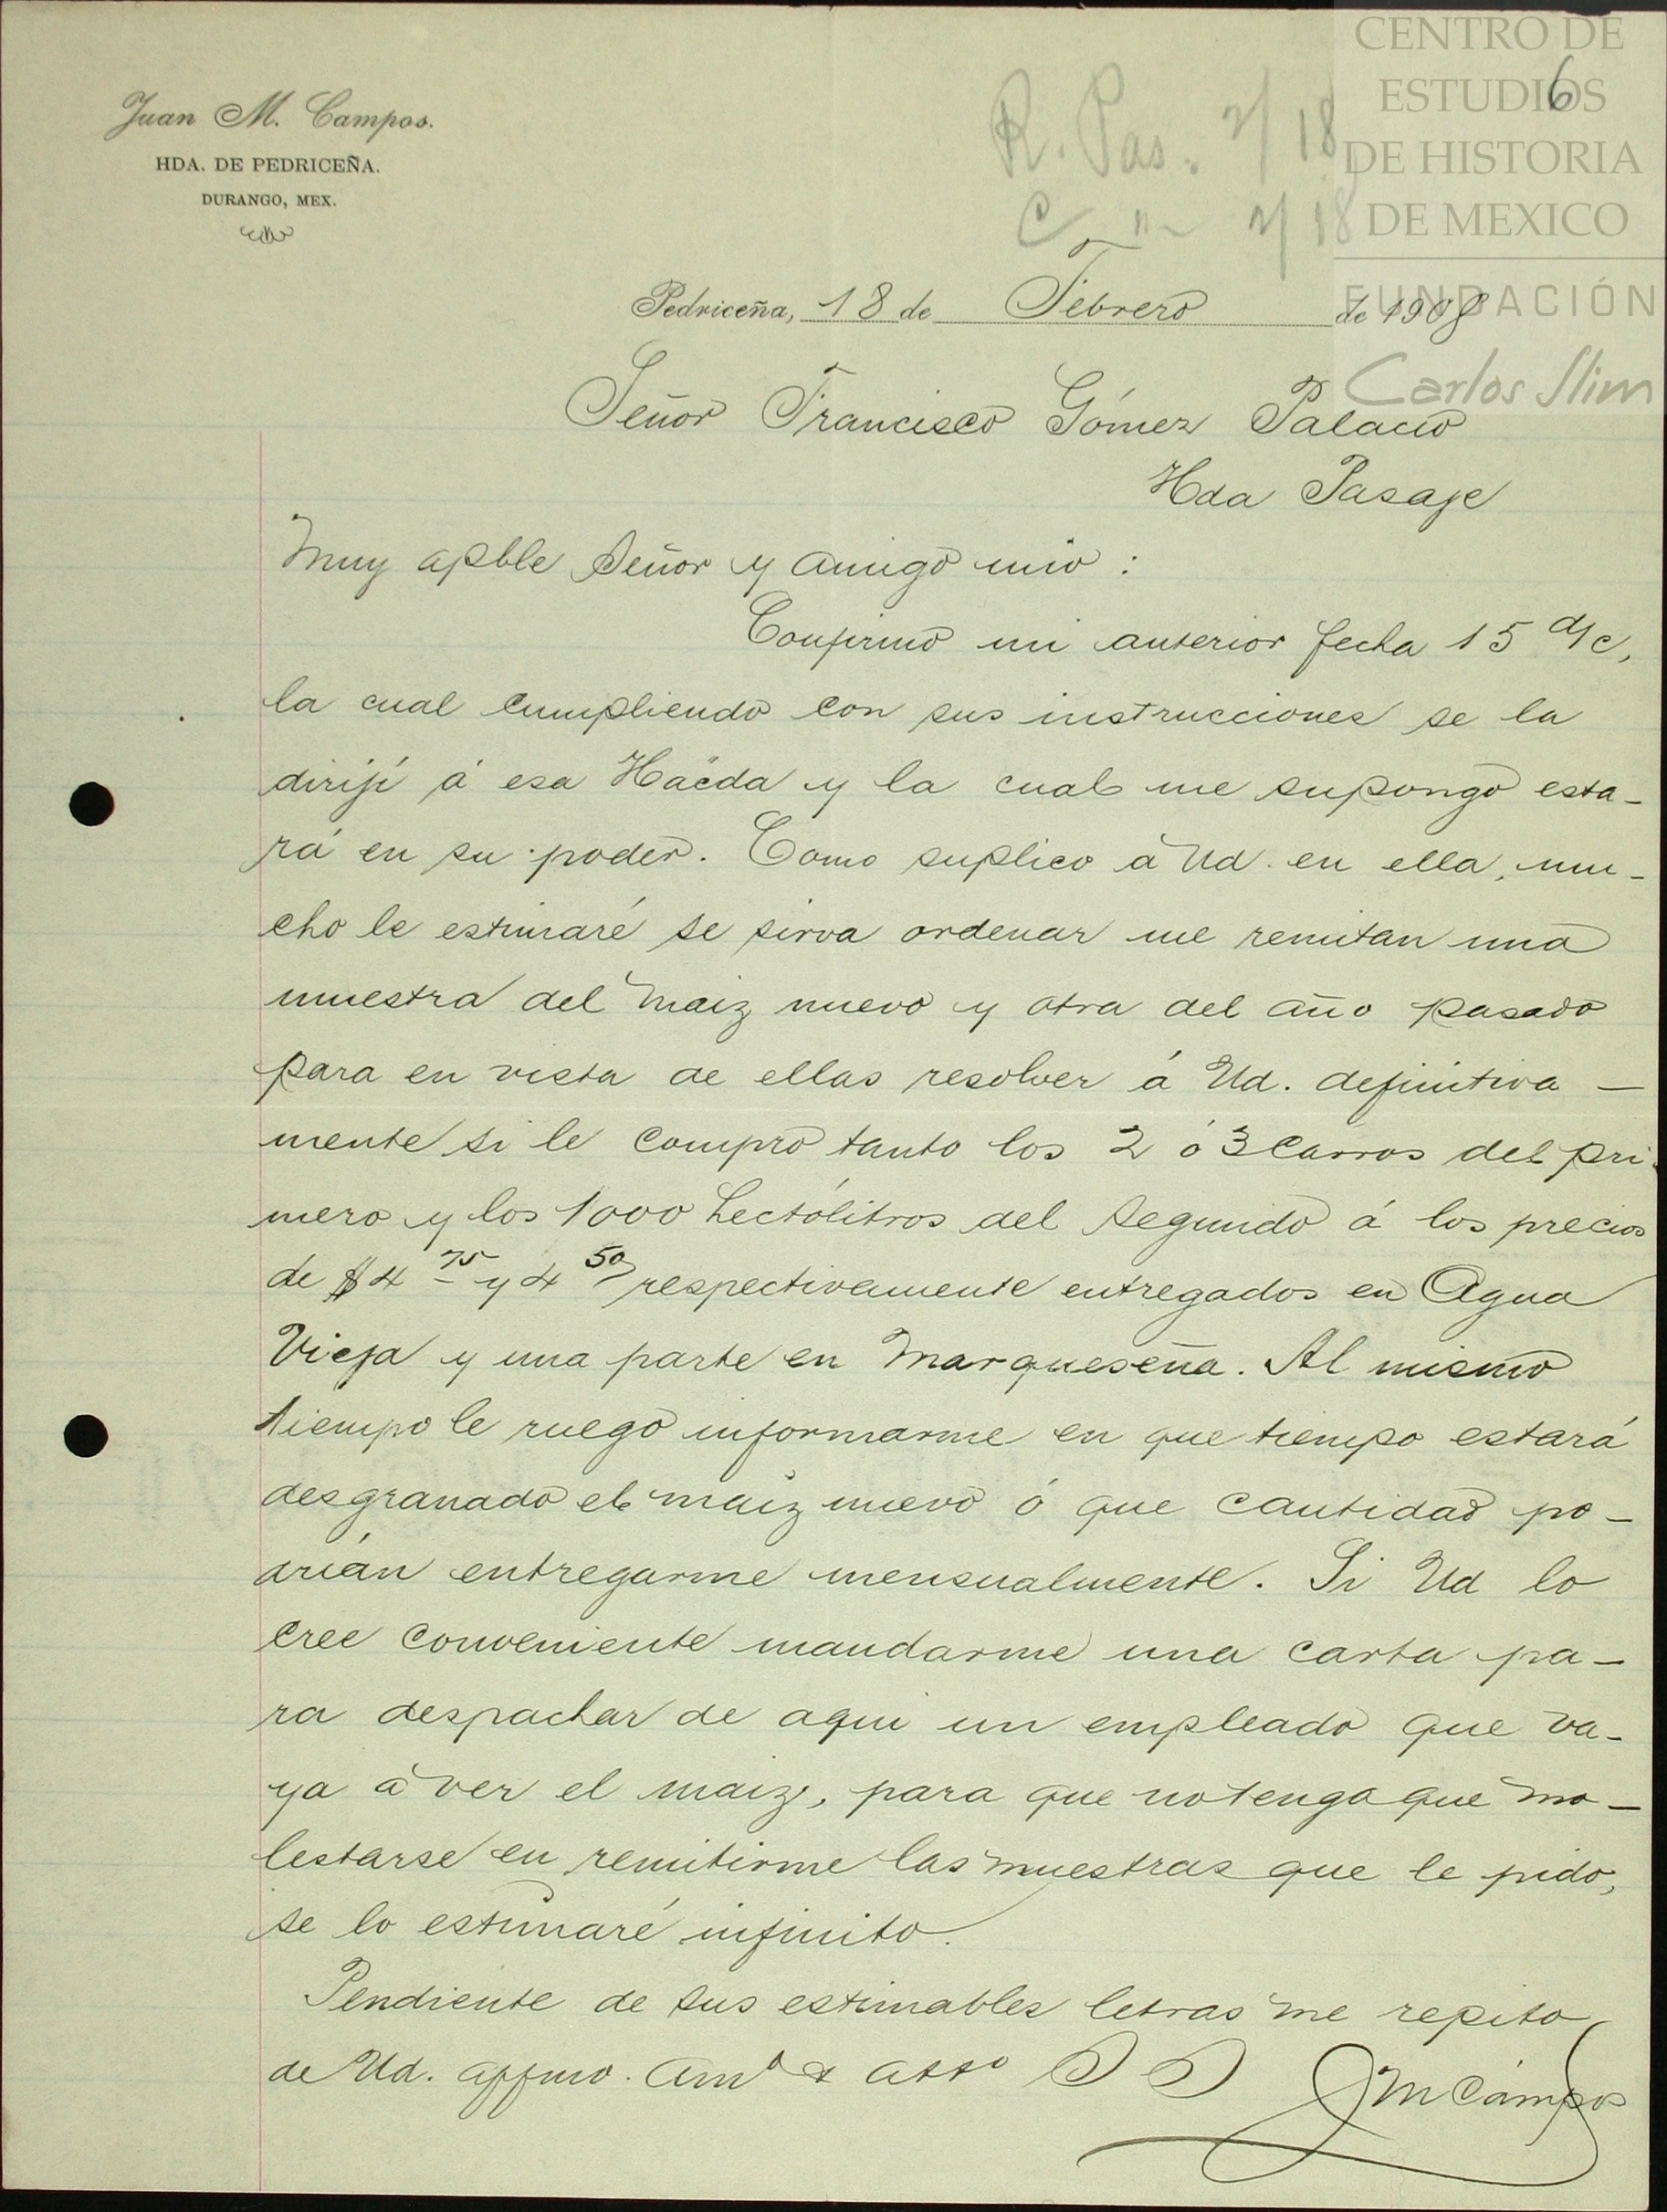 CENTRO DE
ESTUDIOS
DE HISTORIA
DE MEXICO
FUNDACIÓN
Carlos Slim
6
Juan M. Campos.
HDA. DE PEDRICEÑA.
DURANGO, MEX.
R. Pas. 2/18
C " 2/18
Pedriceña, 18 de Febrero de 1908
Señor Francisco Gómez Palacio
Hda Pasaje
Muy apble Señor y amigo mio :
Confirmo mi anterior fecha 15 d/c,
la cual cumpliendo con sus instrucciones se la
dirijí á esa Hacda y la cual me supongo esta-
rá en su poder. Como suplico á Ud. en ella, mu-
cho le estimaré se sirva ordenar me remitan una
muestra del maiz nuevo y otra del año pasado
para en vista de ellas resolver á Ud. definitiva -
mente si le compro tanto los 2 ó 3 carros del pri-
mero y los 1000 Hectólitros del segundo á los precios
de $4 75 y 4 50 respectivamente entregados en Agua
Vieja y una parte en Marqueseña. Al mismo
tiempo le ruego informarme en que tiempo estará
desgranado el maíz nuevo ó que cantidad po-
drían entregarme mensualmente. Si Ud lo
cree conveniente mandarme una carta pa-
ra despachar de aqui un empleado que va-
ya á ver el maiz, para que no tenga que mo-
lestarse en remitirme las muestras que le pido,
se lo estimaré infinito.
Pendiente de sus estimables letras me repito
de Ud. affmo. amo & atto S S
JM Campos